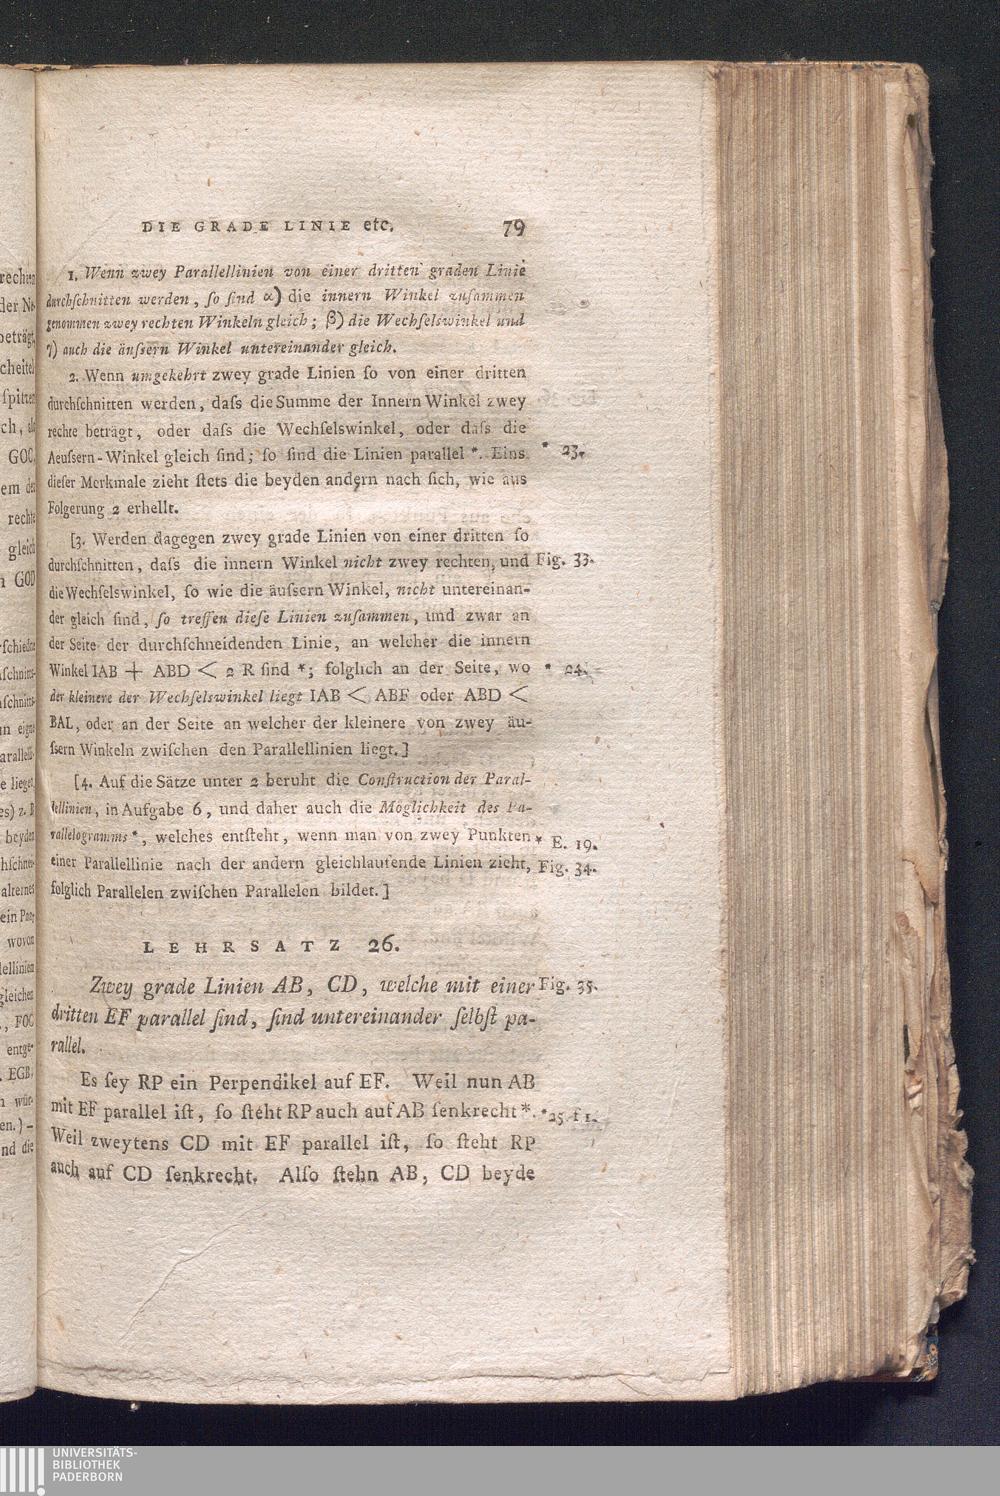 DIE GRADE LINIE etc. 79
1. Wenn zwey Parallellinien von einer dritten graden Linie
durchſchnitten werden, ſo ſind α) die innern Winkel zuſammen
genommen zwey rechten Winkeln gleich; β) die Wechſelswinkel und
γ) auch die äuſsern Winkel untereinander gleich.
2. Wenn umgekehrt zwey grade Linien ſo von einer dritten
durchſchnitten werden, daſs die Summe der Innern Winkel zwey
rechte beträgt, oder daſs die Wechſelswinkel, oder daſs die
Aeuſsern-Winkel gleich ſind; ſo ſind die Linien parallel *. Eins * 23.
dieſer Merkmale zieht ſtets die beyden andern nach ſich, wie aus
Folgerung 2 erhellt.
[3. Werden dagegen zwey grade Linien von einer dritten ſo
durchſchnitten, daſs die innern Winkel nicht zwey rechten, und Fig. 33.
die Wechſelswinkel, ſo wie die äuſsern Winkel, nicht untereinan-
der gleich ſind, ſo treffen dieſe Linien zuſammen, und zwar an
der Seite der durchſchneidenden Linie, an welcher die innern
Winkel IAB + ABD < 2 R ſind *; folglich an der Seite, wo * 24.
der kleinere der Wechſelswinkel liegt IAB < ABF oder ABD <
BAL, oder an der Seite an welcher der kleinere von zwey äu-
ſsern Winkeln zwiſchen den Parallellinien liegt.]
[4. Auf die Sätze unter 2 beruht die Conſtruction der Paral-
lellinien, in Aufgabe 6, und daher auch die Möglichkeit des Pa-
rallelogramms *, welches entſteht, wenn man von zwey Punkten * E. 19.
einer Parallellinie nach der andern gleichlaufende Linien zieht, Fig. 34.
folglich Parallelen zwiſchen Parallelen bildet.]
LEHRSATZ 26.
Zwey grade Linien AB, CD, welche mit einer Fig. 35.
dritten EF parallel ſind, ſind untereinander ſelbſt pa-
rallel.
Es ſey RP ein Perpendikel auf EF. Weil nun AB
mit EF parallel iſt, ſo ſteht RP auch auf AB ſenkrecht *. * 25 f 1.
Weil zweytens CD mit EF parallel iſt, ſo ſteht RP
auch auf CD ſenkrecht. Alſo ſtehn AB, CD beyde
UNIVERSITÄTS-
BIBLIOTHEK
PADERBORN